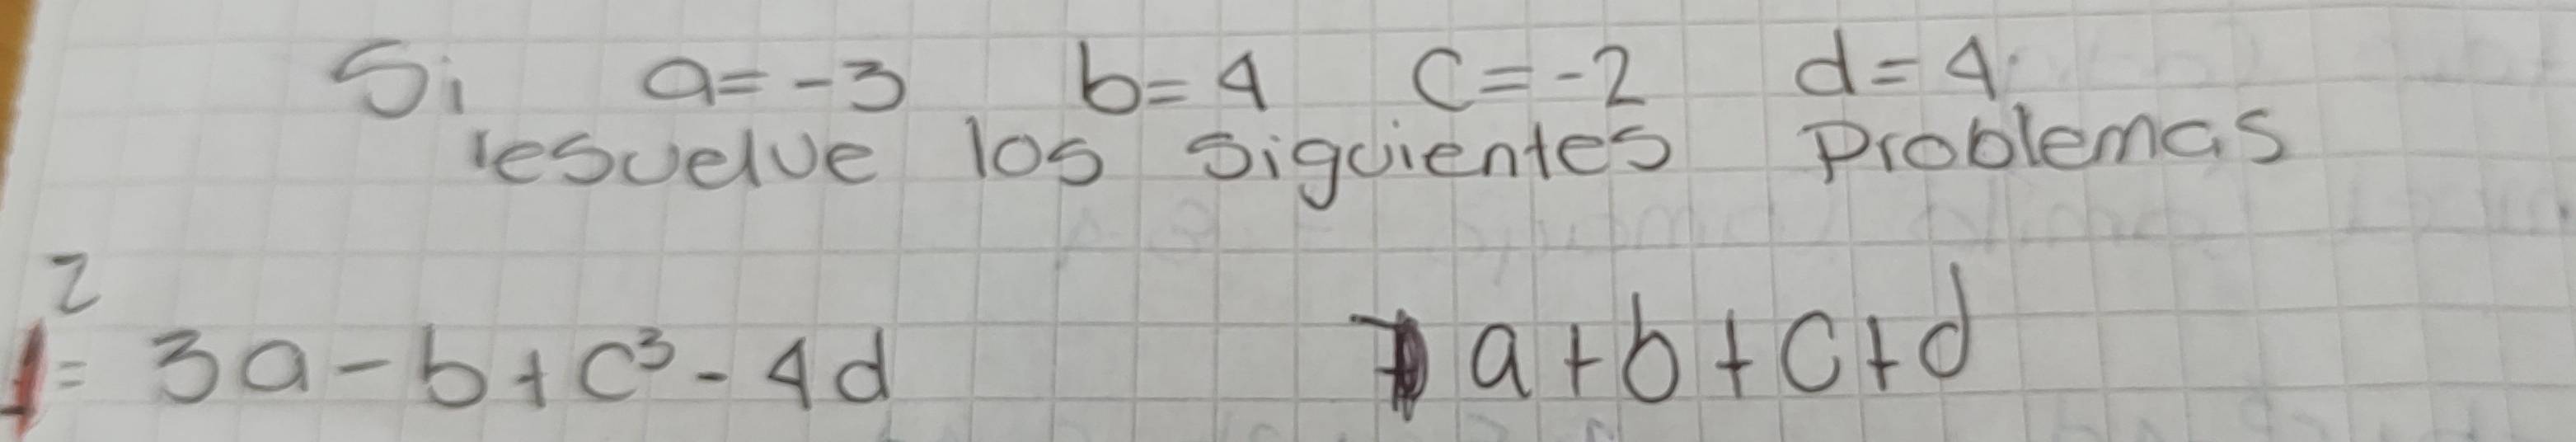 Si a=-3 b=4 c=-2 d=4
resuelve los siguientes problemas
2
1= 3a-b+c³-4d 7 a+b+c+d